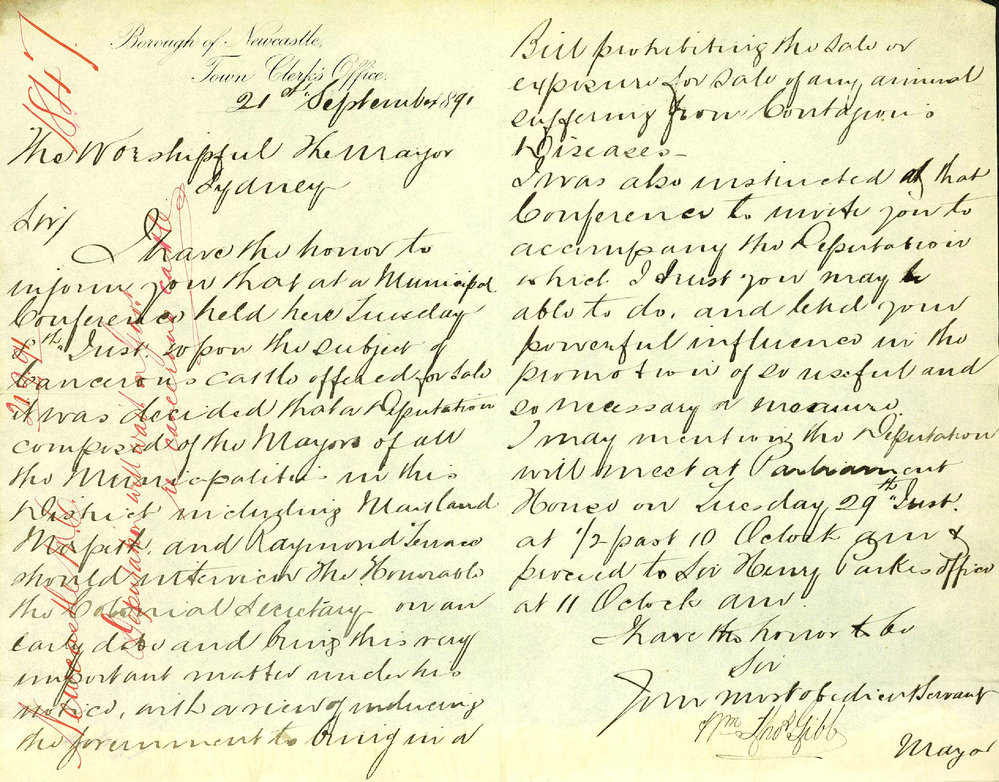 Borough of Newcastle,
Town Clerk's Office.
21st September 1891
The Worshipful The Mayor
Sydney
Sir/
I have the honor to
inform you that at a Municipal
Conference held here Tuesday
8th Inst. upon the subject of
Cancerous cattle offered for sale
it was decided that a Deputation
composed of the Mayors of all
the Municipalities in this
District including Maitland
Morpeth, and Raymond Terrace
should interview The Honorable
the Colonial Secretary on an
early date and bring this very
important matter under his
notice, with a view of inducing
the Government to bring in a
Bill prohibiting the sale or
exposure for sale of any animal
suffering from Contagious
Diseases—
I was also instructed at that
Conference to invite you to
accompany the Deputation
which I trust you may be
able to do, and lend your
powerful influence in the
promotion of so useful and
so necessary a measure.
I may mention the Deputation
will meet at Parliament
House on Tuesday 29th Inst.
at 1/2 past 10 Oclock am &
proceed to Sir Henry Parkes office
at 11 Oclock am.
I have the honor to be
Sir
Your most obedient Servant
Wm Thos Gibb
Mayor
1847
21.9.91
Newcastle M.C.
Deputation will wait on
re cancerous cattle